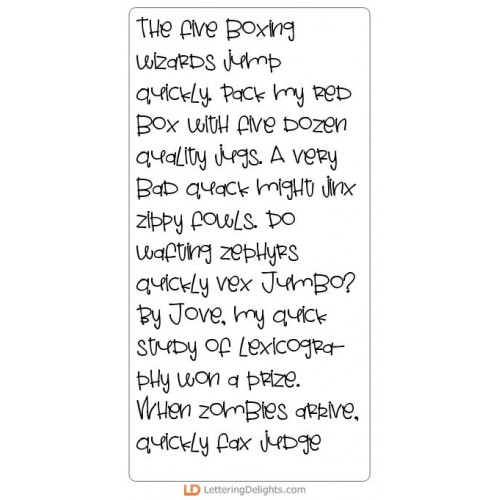 The five Boxing
wizards jump
quickly. Pack my red
Box with five dozen
quality jugs. A very
Bad quack might jinx
zippy fowls. Do
wafting zephyrs
quickly vex Jumbo?
By Jove, my quick
study of Lexicogra-
phy won a prize.
When zombies arrive,
quickly fax judge
LD LetteringDelights.com